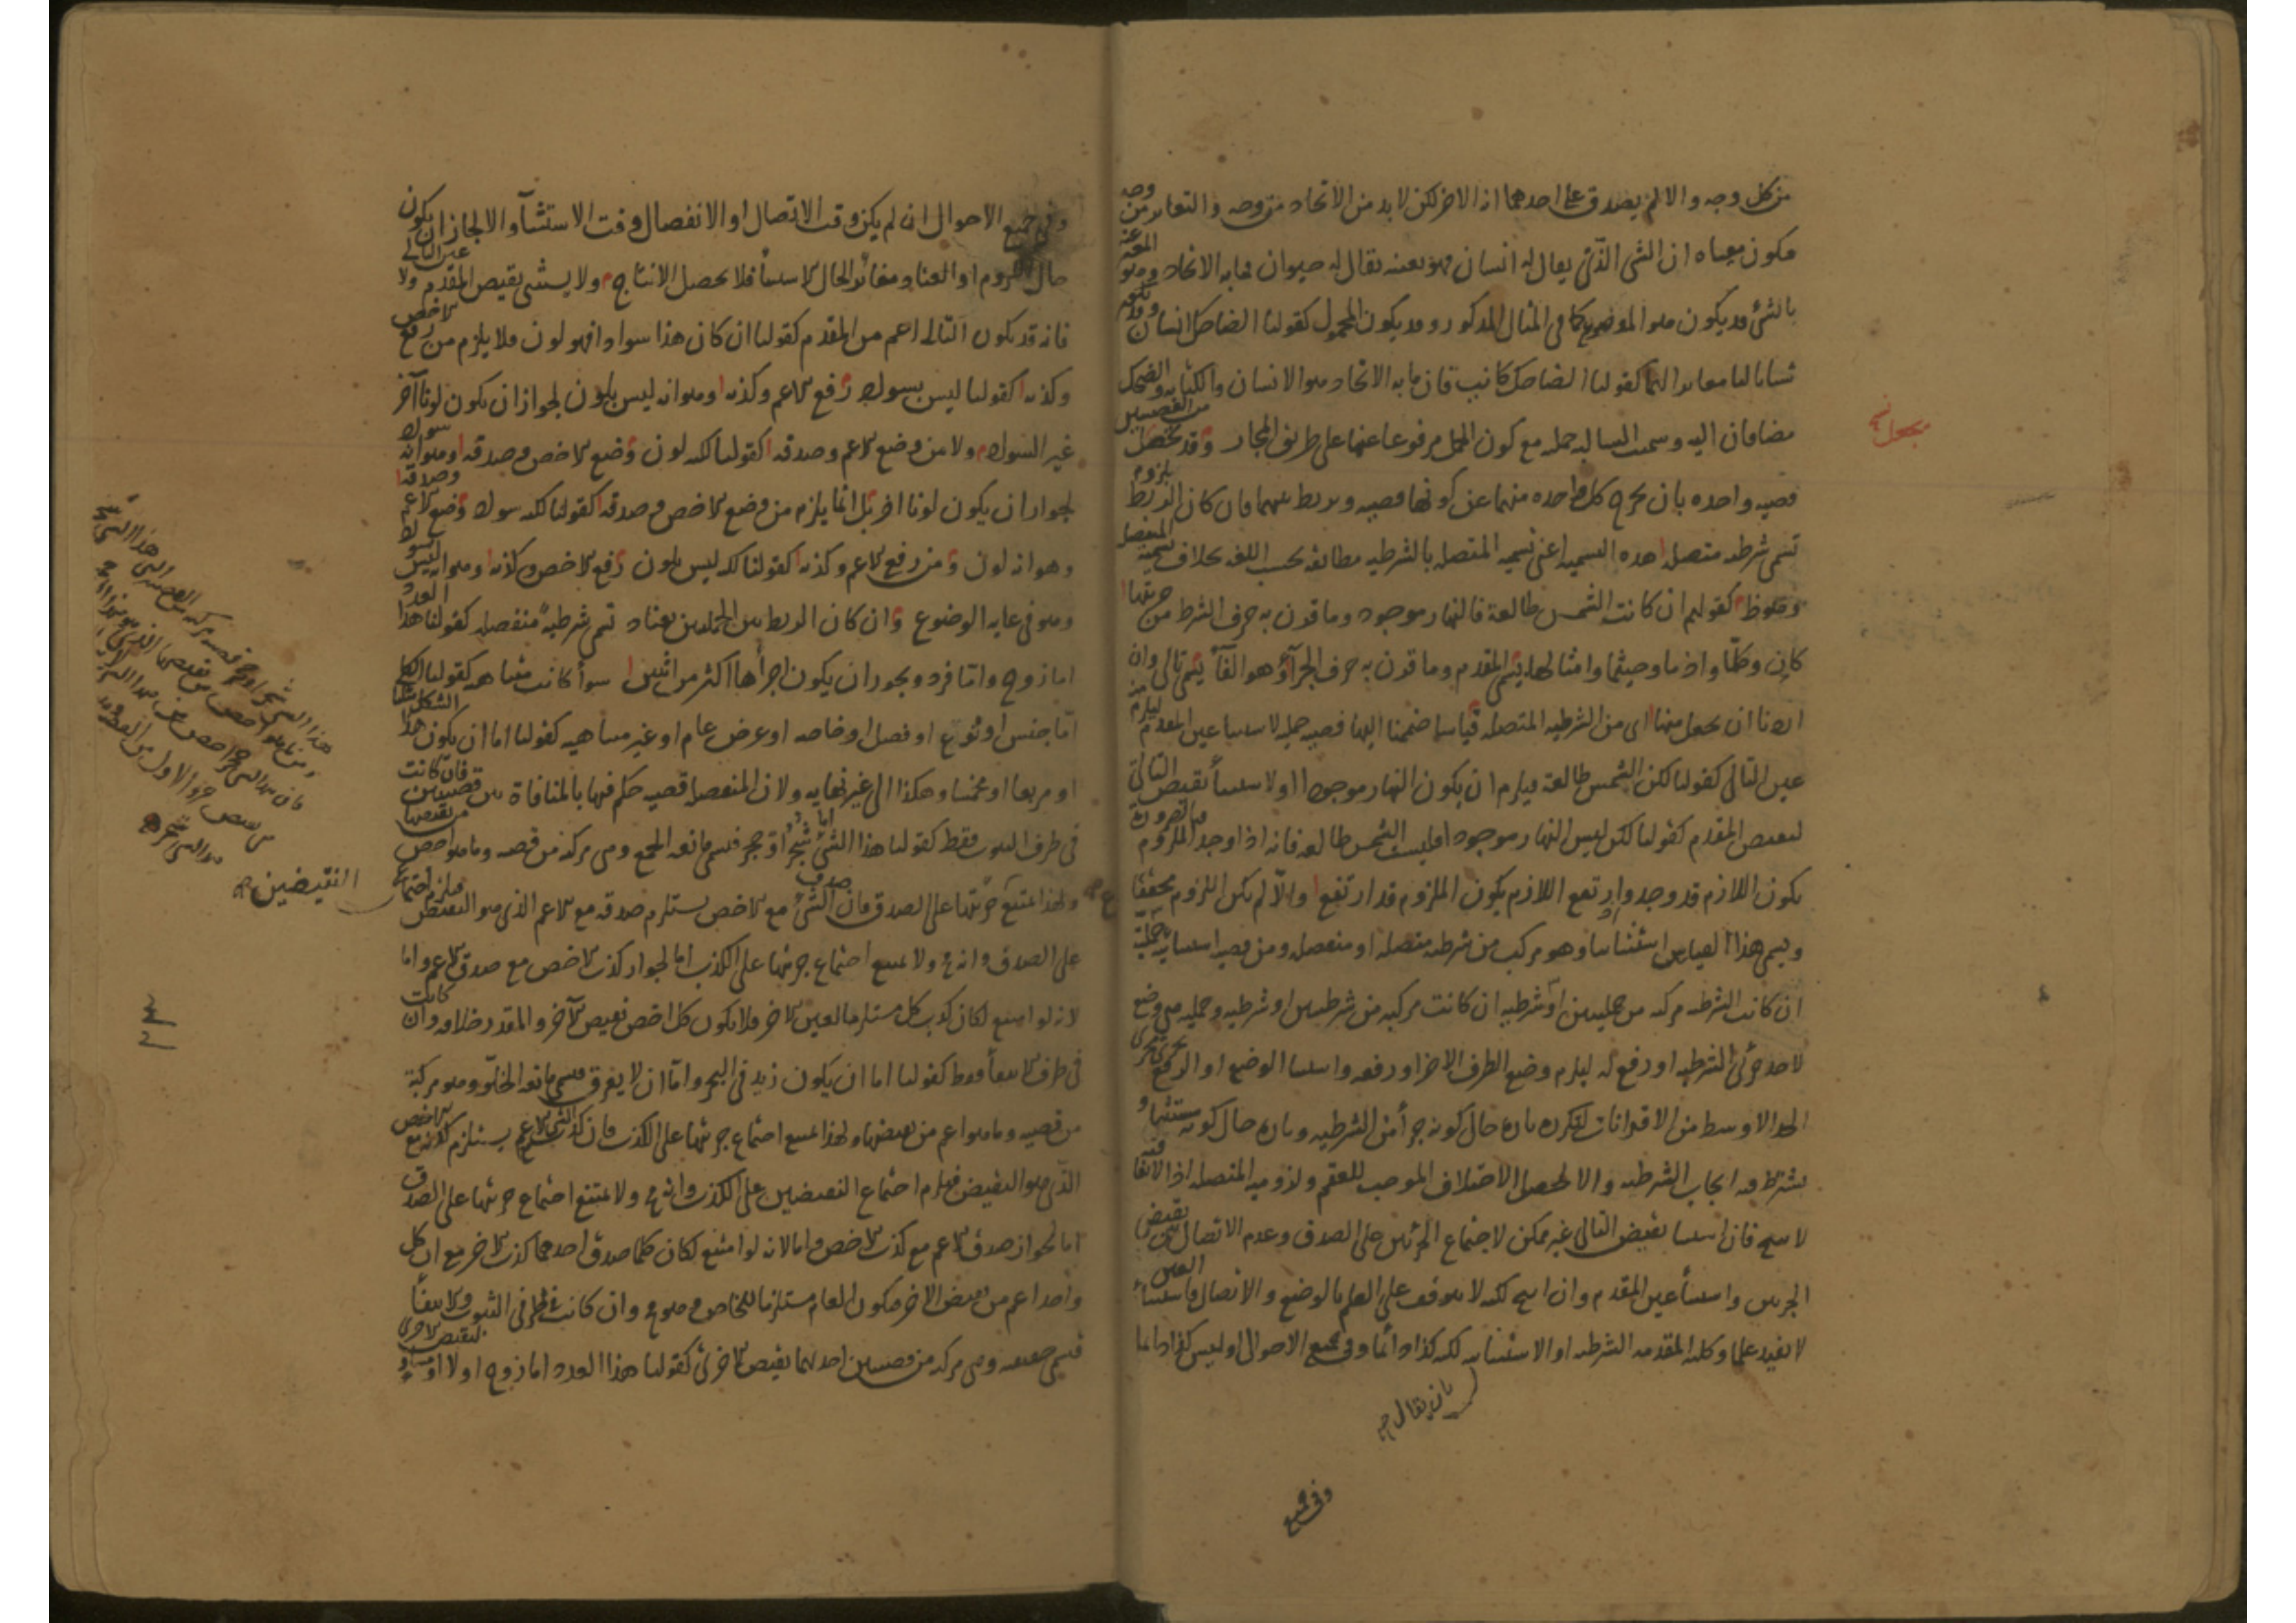 من كل وجه والا لم يصدق على احدهما انه الاخر لكن لابد من الاتحاد من وجه والتغاير من وجه
فيكون معناه ان الشئ الذي يقال له انسان فهو بعينه يقال له حيوان فما به الاتحاد وهو المعبر عنه
بالشئ قد يكون هو الموضوع كما في المثال المذكور وقد يكون المحمول كقولنا الضاحك انسان وقد يكون
ثالثا مغايرا لهما كقولنا الضاحك كاتب فان ما به الاتحاد هو الانسان والكتابة والضحك
مضافان اليه وسميت السالبه حمليه مع كون الحمل مرفوعا عنها على طريق المجاز وقد يحصل من القضيتين
قضيه واحده بان يخرج كل واحده منهما عن كونها قضيه ويربط بينهما فان كان الربط بلزوم
تسمى شرطيه متصله هذه التسميه اعنى تسميه المتصل بالشرطيه مطابقه بحسب اللغه بخلاف تسميه المنفصل
كقولهم ان كانت الشمس طالعة فالنهار موجود وما قرن به حرف الشرط من جزئيها
كان وكلما واذ ما وحيثما وامثالها يسمى المقدم وما قرن به حرف الجزاء وهو الفاء يسمى تالى وان
اردنا ان نجعل منها اى من الشرطيه المتصله قياسا ضممنا اليها قضيه حمليه لاستثنا عين المقدم ليلزم منه
عين التالى كقولنا لكن الشمس طالعة فيلزم ان يكون النهار موجودا اولا ستثنا نقيض التالى
لنقيض المقدم كقولنا لكن ليس النهار موجود افليست الشمس طالعه فانه اذا وجد الملزوم بالضرورة
يكون اللازم قد وجد وارتفع اللازم يكون الملزوم قد ارتفع والا لم يكن اللزوم محققا
ويسمى هذا القياس استثنائيا وهو مركب من شرطيه متصله او منفصله ومن قضيه استثنائيه حملية
ان كانت الشرطيه مركبه من حمليتين او شرطيه ان كانت مركبه من شرطيتين او شرطيه وحمليه هى وضع
لاحد جزئى الشرطيه او رفع له ليلزم وضع الطرف الاخر او رفعه واستثنا الوضع او الرفع يجرى مجرى
الحد الاوسط من الاقترانيات لتكرره تاره حال كونه جزأ من الشرطيه وتاره حال كونه مستثنيا و
يشترط فيه ايجاب الشرطيه والا لحصل الاختلاف الموجب للعقم ولزوميه المتصله اذ الاتفاقيه
لا تنتج فان استثنا نقيض التالى غير ممكن لاجتماع الجزئين على الصدق وعدم الاتصال بين نقيض
الجزئين واستثنا عين المقدم وان انتج لكنه لا يتوقف على العلم بالوضع والاتصال فاستثناء العين
لا يفيد علما وكليه المقدمه الشرطيه او الاستثنائيه لكنه كذا دائما وفي جميع الاحوال او ليس كذا دائما
بان يقال
وفى جميع
يجعل
وفى جميع الاحوال ان لم يكن وقت الاتصال او الانفصال وقت الاستثنآ والا لجاز ان يكون
حال اللزوم او العناد مغايرا لحال الاستثنا فلا يحصل الانتاج ولا يستثنى نقيض المقدم ولا عين التالى
فانه قد يكون التالى اعم من المقدم كقولنا ان كان هذا سوادا فهو لون فلا يلزم من رفع الاخص
وكذبه كقولنا ليس بسواد رفع الاعم وكذبه وهو انه ليس بلون لجواز ان يكون لونا آخر
غير السواد ولا من وضع الاعم وصدقه كقولنا لكنه لون وضع الاخص وصدقه وهو انه سواد
لجواز ان يكون لونا اخر بل انما يلزم من وضع الاخص وصدقه كقولنا لكنه سواد وضع الاعم وصدقه
وهو انه لون ومن رفع الاعم وكذبه كقولنا لكنه ليس بلون رفع الاخص وكذبه وهو انه ليس بسواد
وهو فى غايه الوضوع وان كان الربط بين الجملتين بعناد تسمى شرطية منفصله كقولنا هذا العدد
اما زوج واما فرد ويجوز ان يكون اجزأها اكثر من اثنين سوأ كانت متناهيه كقولنا الكلى
اما جنس او نوع او فصل او خاصه او عرض عام او غير متناهيه كقولنا اما ان يكون هذا الشكل مثلثا
او مربعا او مخمسا وهكذا الى غير نهايه ولان المنفصله قضيه حكم فيها بالمنافاة بين قضيتين فان كانت
فى طرف الثبوت فقط كقولنا هذا الشئ اما شجر او حجر فتسمى مانعه الجمع وهى مركبه من قضيه وما هو اخص من نقيضها
ولهذا يمتنع جزئيها على الصدق فان صدق الشئ مع الاخص يستلزم صدقه مع الاعم الذى هو النقيض فيلزم اجتماع
النقيضين
على الصدق وانه ولا يمتنع اجتماع جزئيها على الكذب اما لجواز كذب الاخص مع صدق الاعم واما
لانه لو امتنع لكان كذب كل مستلزما لعين الاخر فلا يكون كل اخص نقيض الآخر والمقدر خلافه وان كانت
فى طرف الانتفأ فقط كقولنا اما ان يكون زيد فى البحر واما ان لا يغرق فتسمى مانعه الخلو وهو مركبة
من قضيه وما هو اعم من نقيضها ولهذا يمتنع اجتماع جزئيها على الكذب فان كذب الشئ مع الاعم يستلزم كذبه مع الاخص
الذى هو النقيض فيلزم اجتماع النقيضين على الكذب وانه ولا يمتنع اجتماع جزئيها على الصدق
اما لجواز صدق الاعم مع كذب الاخص واما لانه لو امتنع لكان كلما صدق احدهما كذب الاخر مع ان كل
واحد اعم من نقيض الاخر فيكون العام مستلزما للخاص وهو وان كانت فى طرفى الثبوت والانتفأ
فتسمى حقيقيه وهى مركبه من قضيتين احدهما نقيض الاخرى كقولنا هذا العدد اما زوج اولا او مساو لنقيض الاخرى